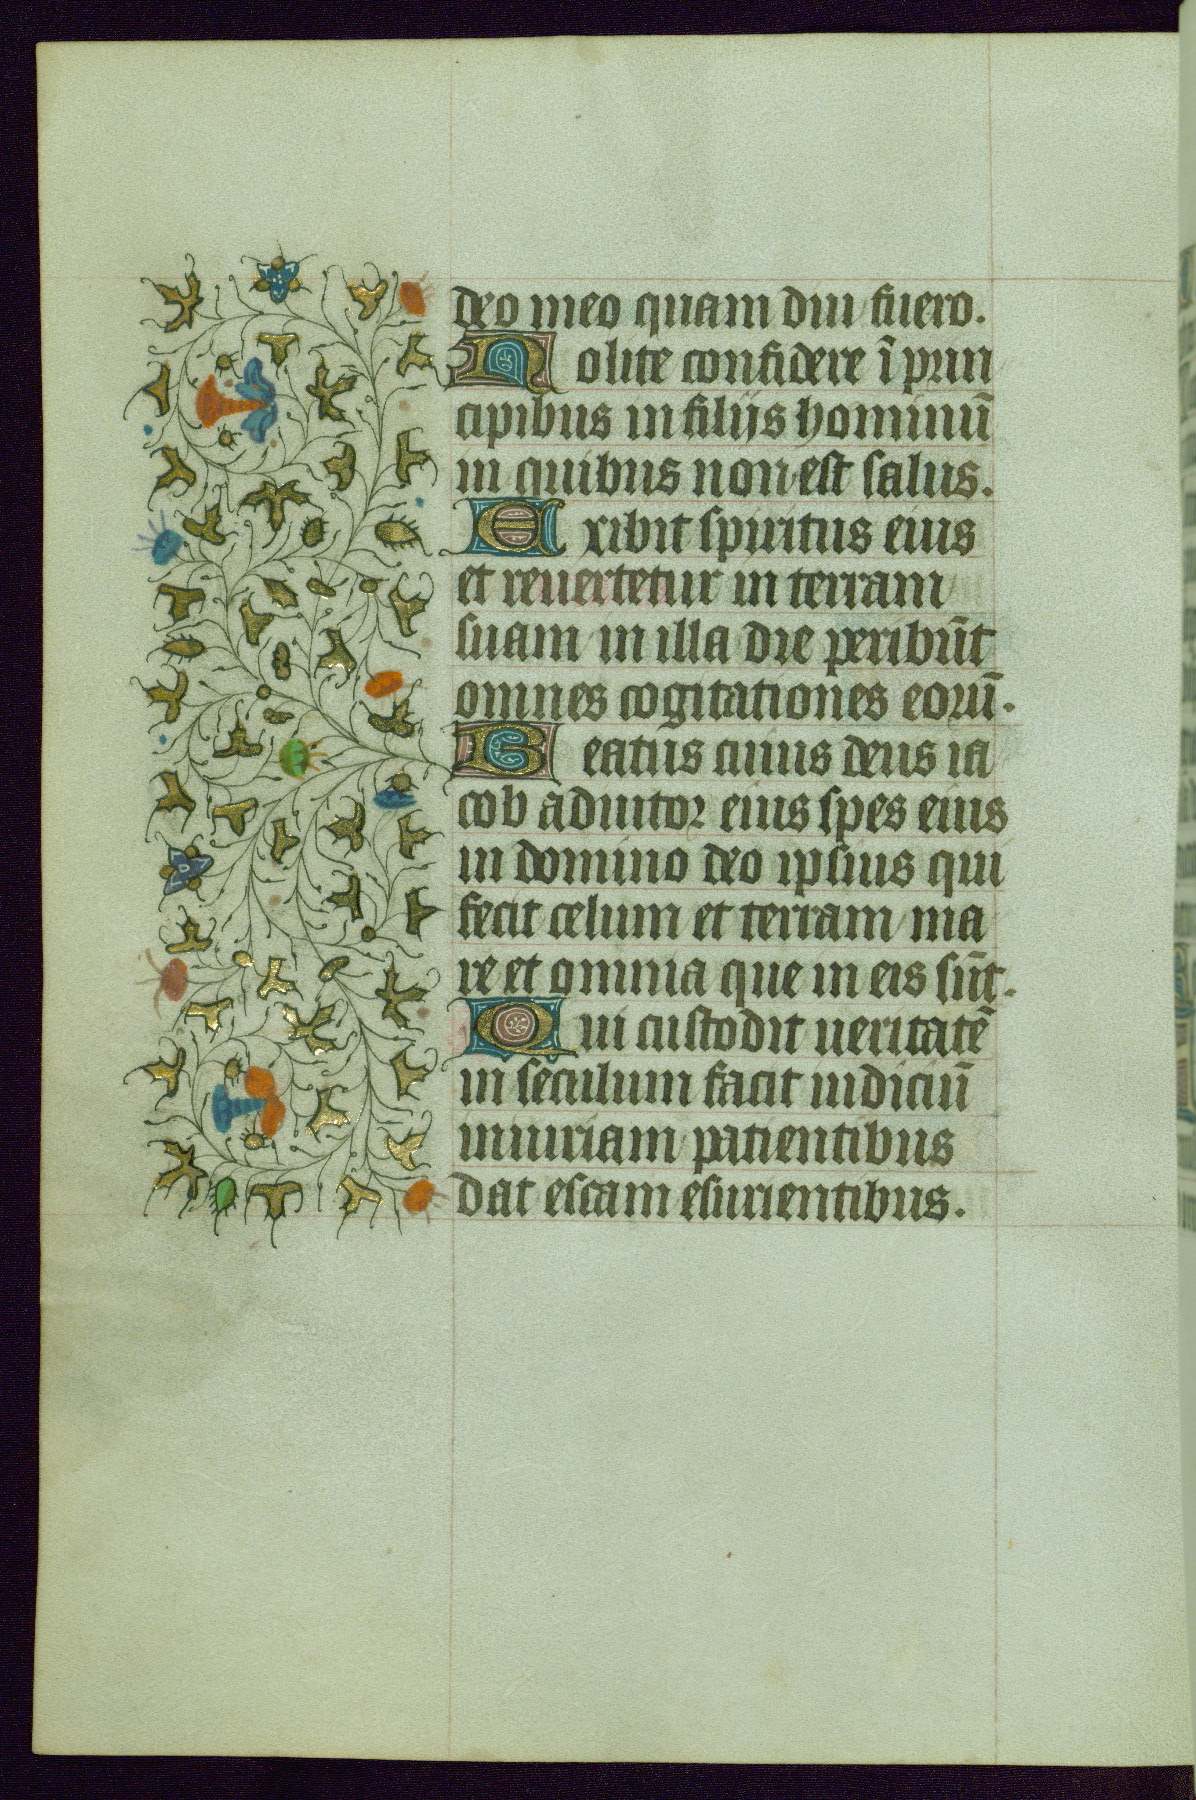 deo meo quam diu fuero.
Nolite confidere ī prin
cipibus in filijs hominū
in quibus non est salus.
Exibit spiritus eius
et reuertetur in terram
suam in illa die peribūt
omnes cogitationes eorū.
Beatus cuius deus ia
cob adiutor eius spes eius
in domino deo ipsius qui
fecit celum et terram ma
re et omnia que in eis sūt.
Qui custodit ueritatē
in seculum facit iudiciū
iniuriam patientibus
dat escam esurientibus.